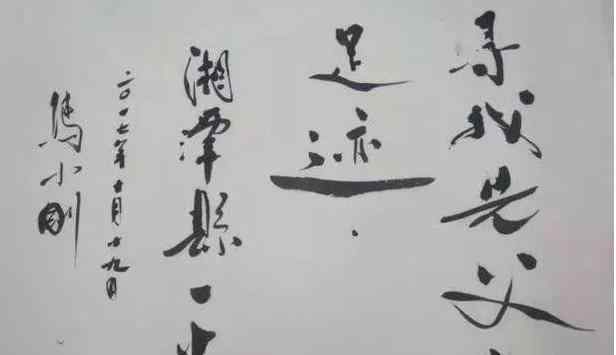 寻我先父
足迹
湘潭縣一
二〇一七年十月十九日
馬小剛